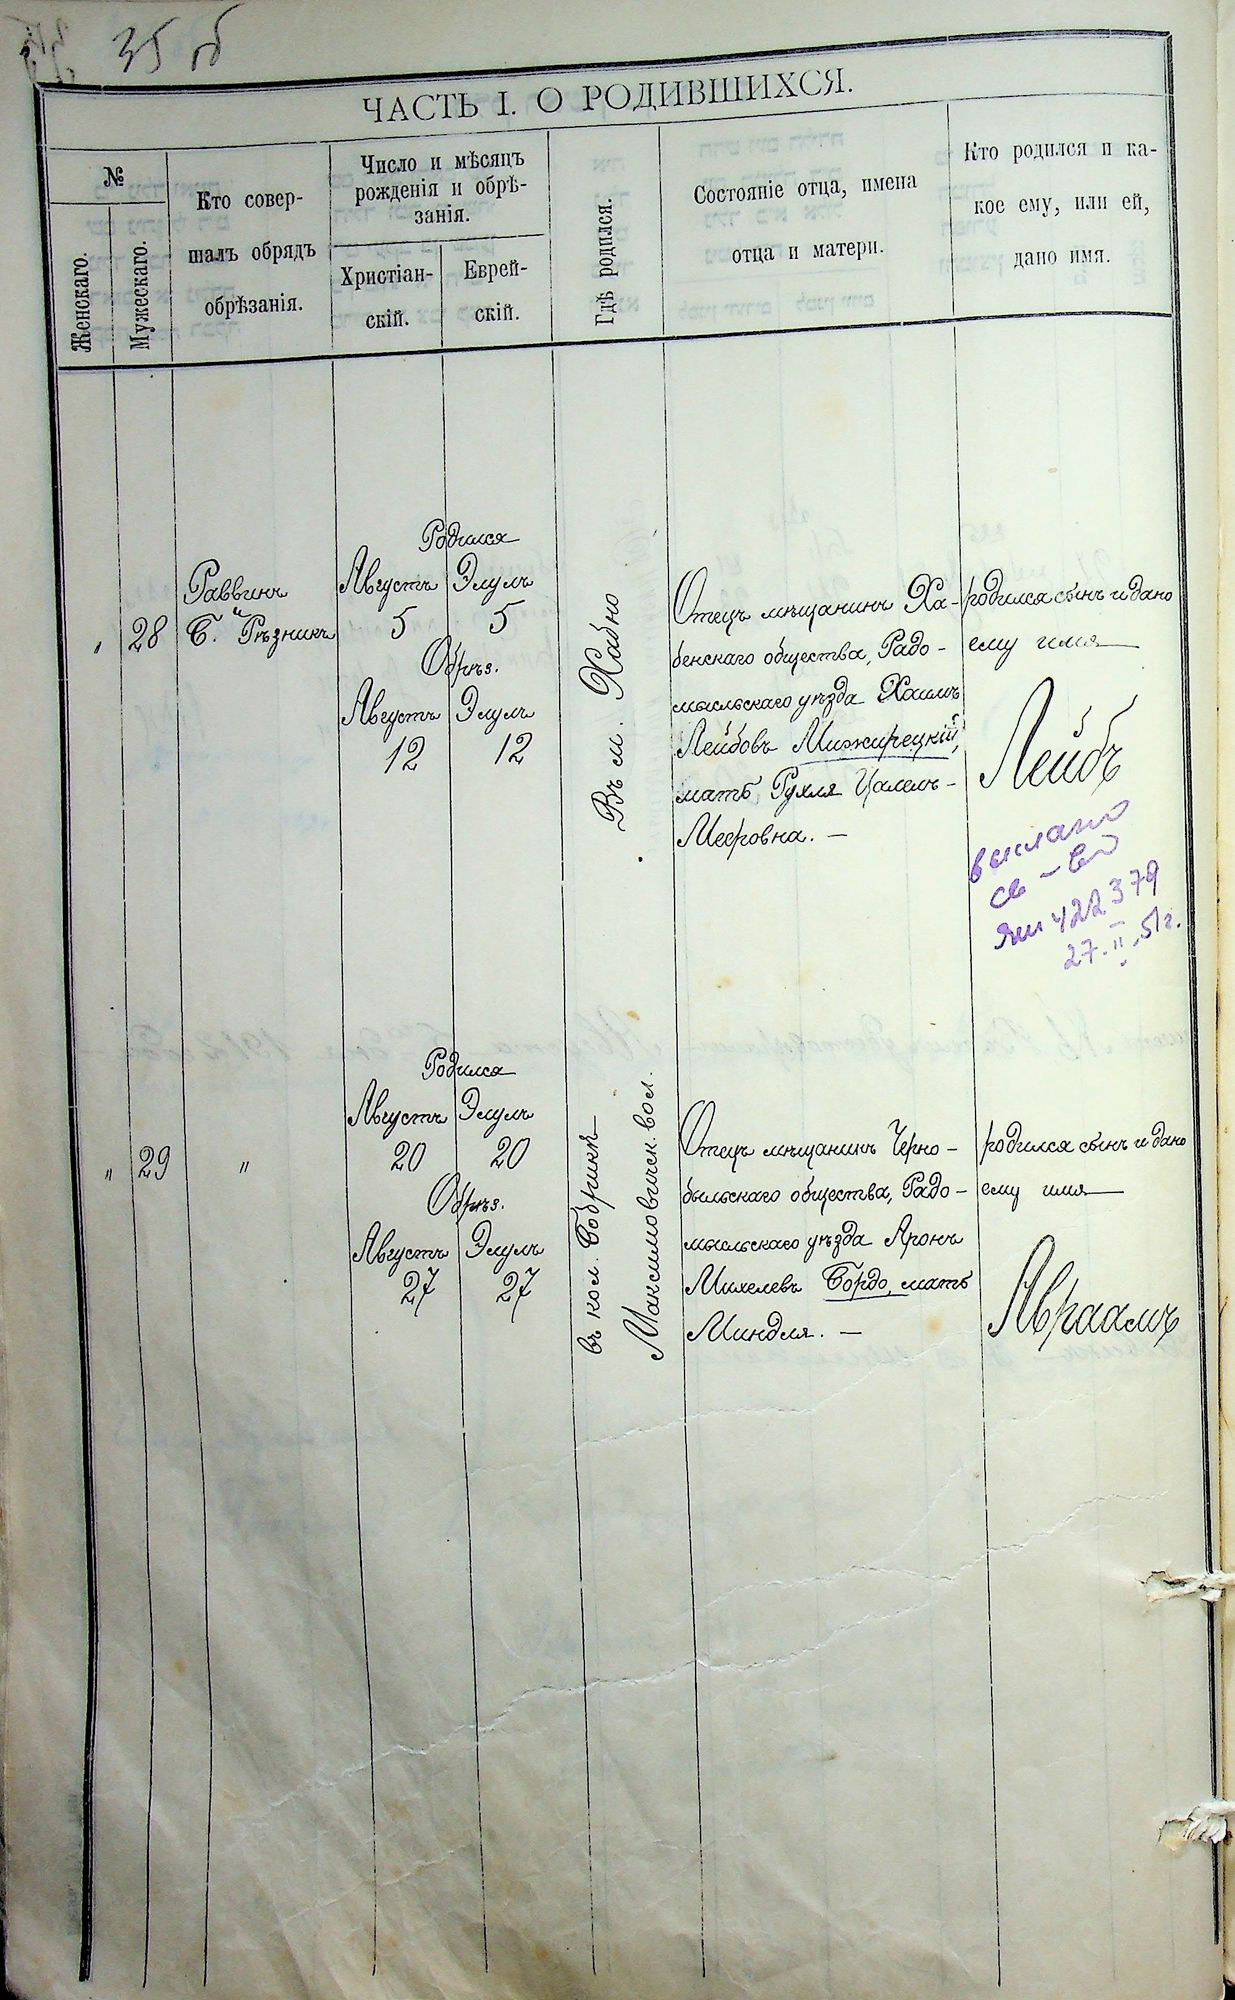 35 об
ЧАСТЬ I. О РОДИВШИХСЯ.
№
Женскаго.
Мужескаго.
Кто совер-
шалъ обрядъ
обрѣзанія.
Число и мѣсяцъ
рожденія и обрѣ-
занія.
Христіан-
скій.
Еврей-
скій.
Гдѣ родился.
Состояніе отца, имена
отца и матери.
Кто родился и ка-
кое ему, или ей,
дано имя.
" 28
Раввинъ
Б. Рѣзникъ
Родился
Августъ Элулъ
5 5
Обрѣз.
Августъ Элулъ
12 12
Въ м. Хабно
Отецъ мѣщанинъ Ха-
бенскаго общества, Радо-
мысльскаго уѣзда Хаимъ
Лейбовъ Мижирецкій,
мать Рухля Цалелъ-
Мееровна. —
родился сынъ и дано
ему имя
Лейбъ
выслано
св-во
422379
27.II.51г.
" 29 "
Родился
Августъ Элулъ
20 20
Обрѣз.
Августъ Элулъ
27 27
въ кол. Бобрикѣ
Максимовичск. вол.
Отецъ мѣщанинъ Черно-
быльскаго общества, Радо-
мысльскаго уѣзда Аронъ
Михелевъ Бордо, мать
Миндля. —
родился сынъ и дано
ему имя
Авраамъ